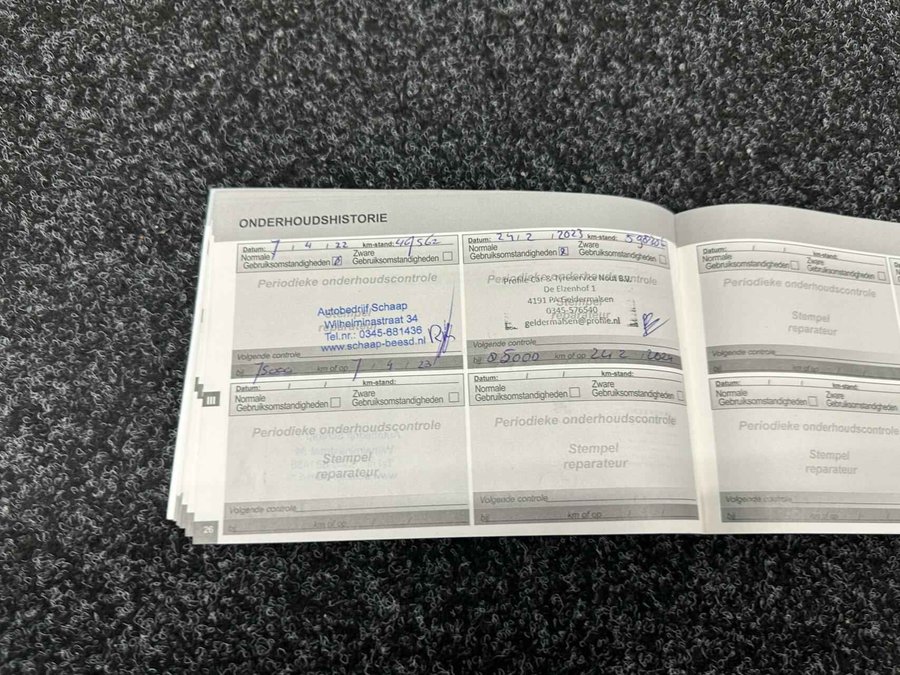 ONDERHOUDSHISTORIE
Datum: 7 / 4 / 22 km-stand: 49562
Normale Gebruiksomstandigheden Zware Gebruiksomstandigheden
Periodieke onderhoudscontrole
Stempel reparateur
Autobedrijf Schaap
Wilhelminastraat 34
Tel.nr.: 0345-681436
www.schaap-beesd.nl
Volgende controle
bij 15000 km of op 7 / 4 / 23
Datum: 24 / 2 / 2023 km-stand:
Normale Gebruiksomstandigheden Zware Gebruiksomstandigheden
Periodieke onderhoudscontrole
Stempel reparateur
Profile Car & Tyreservice B.V.
De Elzenhof 1
4191 PA Geldermalsen
0345-576540
geldermalsen@profile.nl
Volgende controle
bij km of op 242 / 2024
km-stand:
Periodieke onderhoudscontrole
Stempel
reparateur
Volgende controle
Datum: / / km-stand:
Normale Zware
Gebruiksomstandigheden Gebruiksomstandigheden
Periodieke onderhoudscontrole
Stempel
reparateur
Volgende controle
bij km of op / /
Datum: / / km-stand:
Normale Zware
Gebruiksomstandigheden Gebruiksomstandigheden
Periodieke onderhoudscontrole
Stempel
reparateur
Volgende controle
bij km of op / /
Datum: / / km-stand:
Normale Zware
Gebruiksomstandigheden
Periodieke onderhoudscontrole
Stempel
reparateur
Volgende controle
bij km of op
III
26